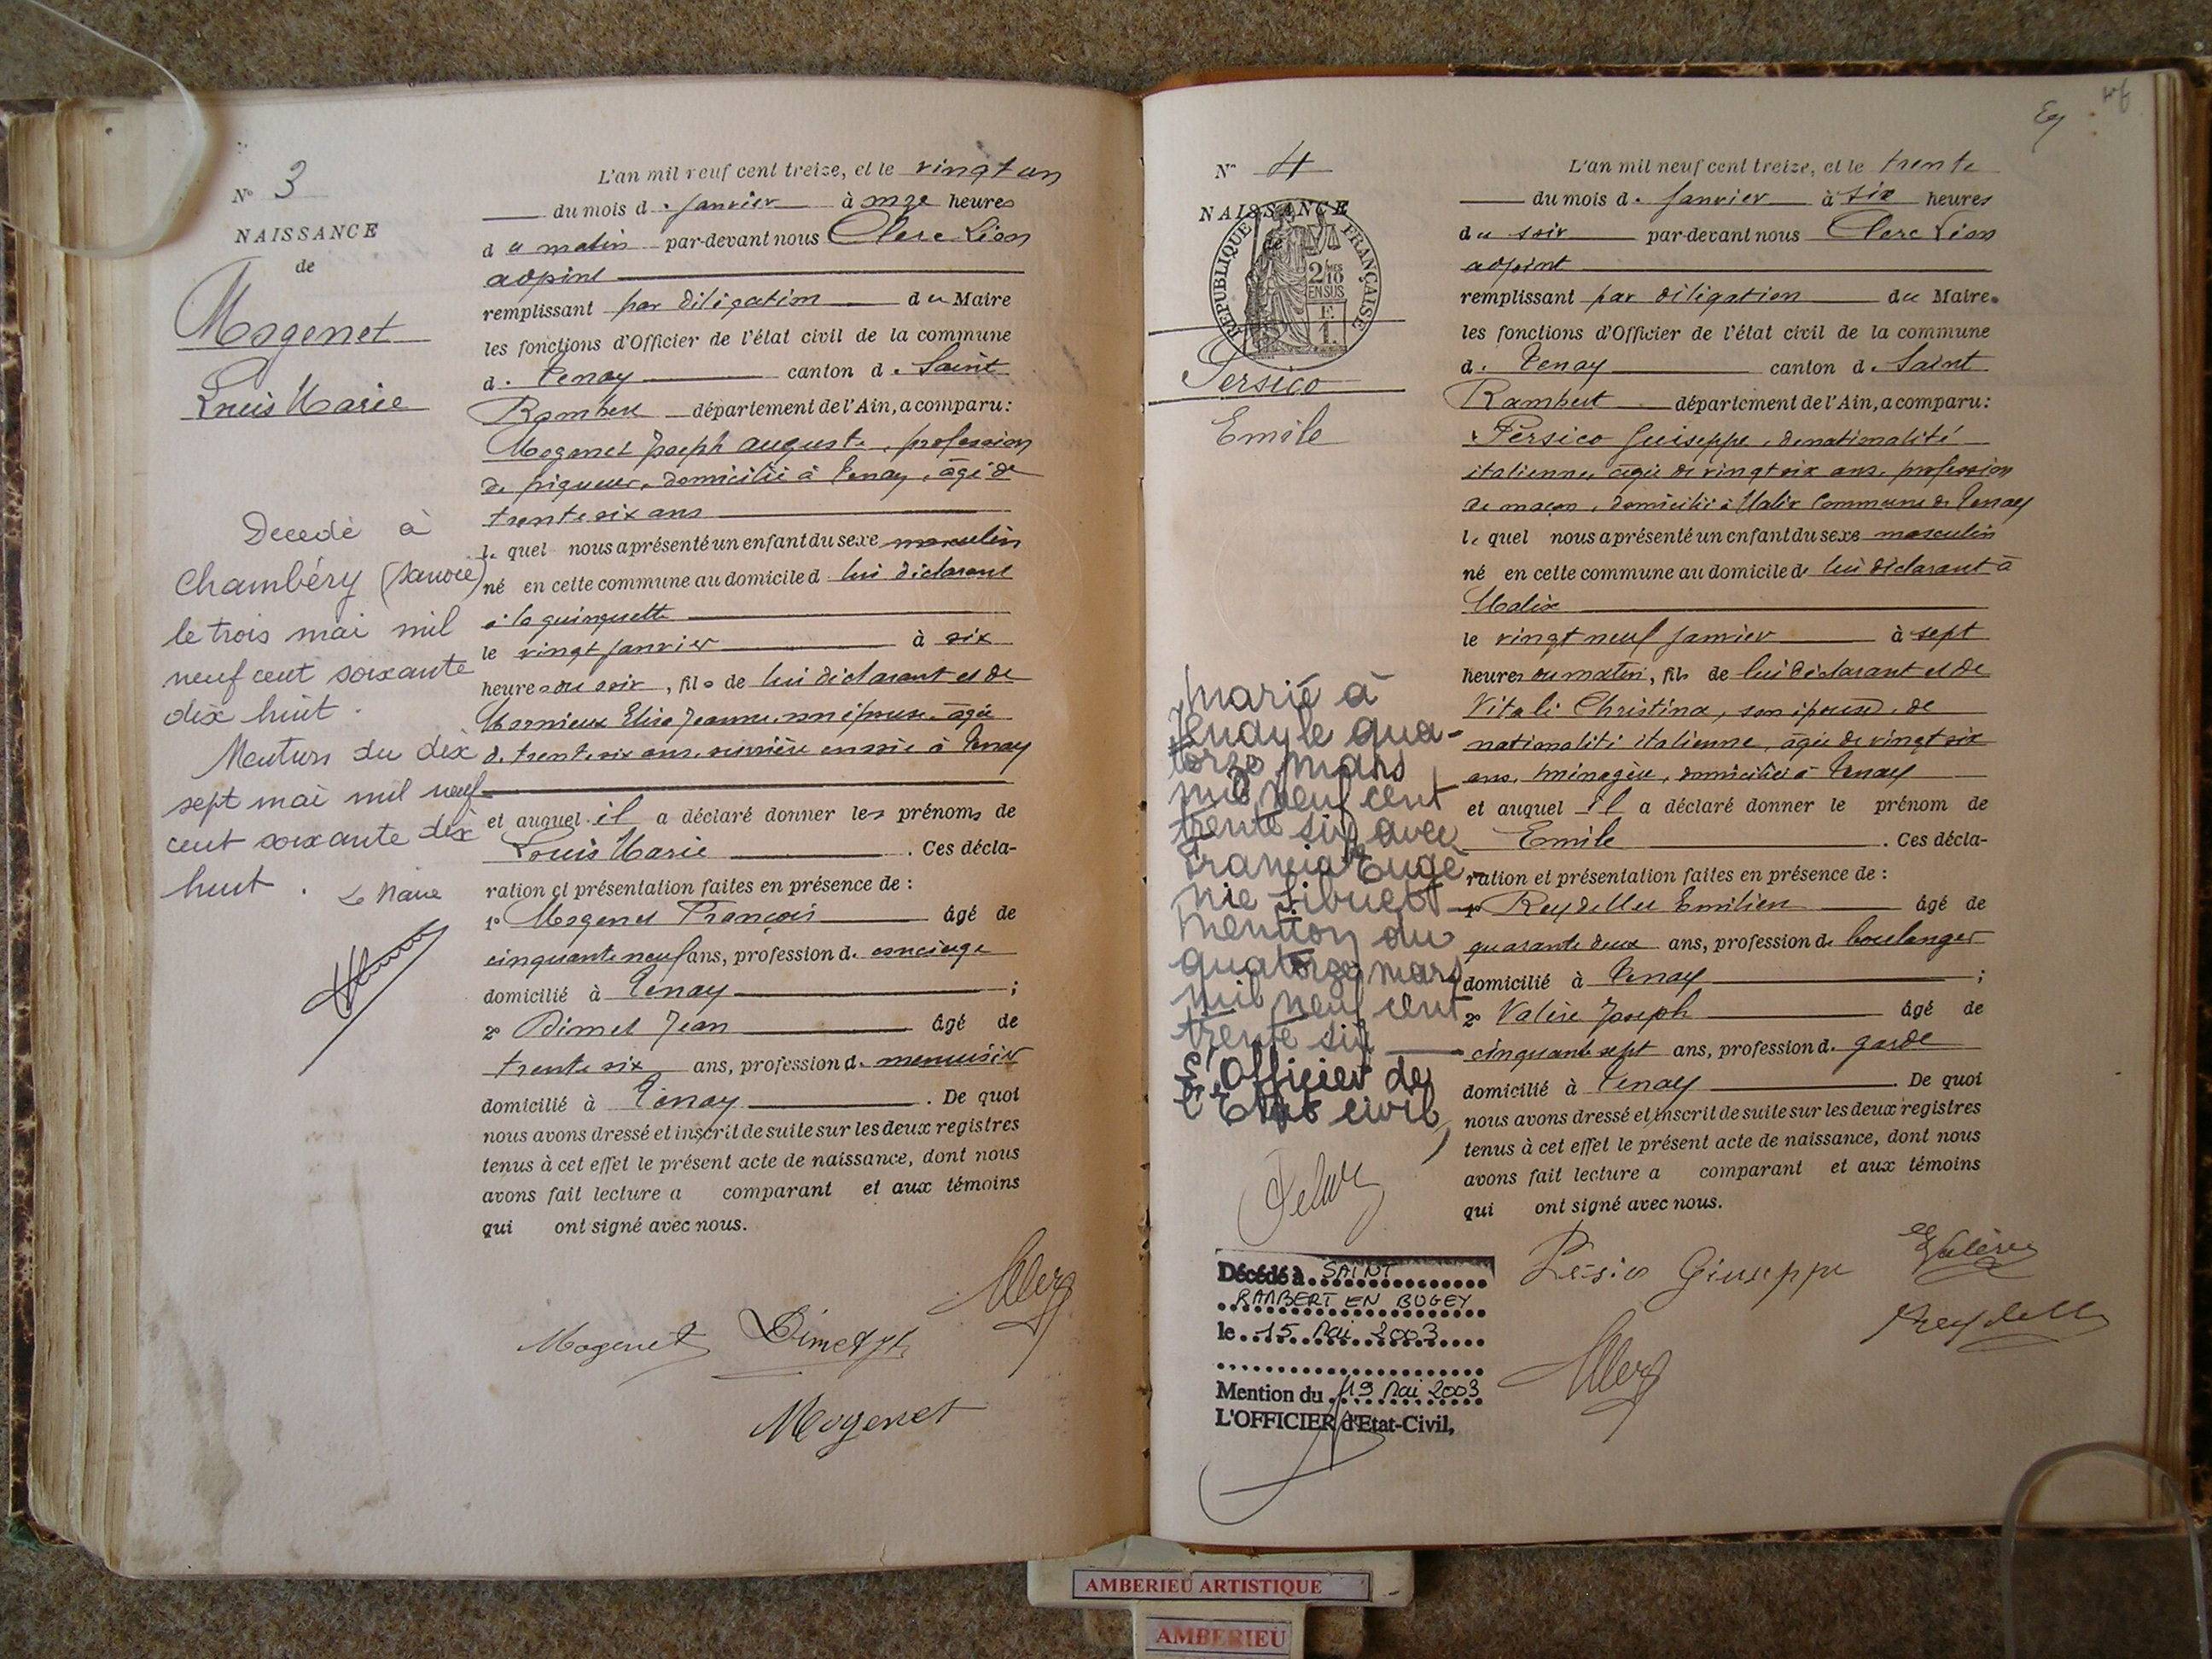 N° 3
NAISSANCE
de
Mogenet
Louis Marie
Decedé à
Chambéry (Savoie)
le trois mai mil
neuf cent soixante
dix huit.
Mention du dix
sept mai mil neuf
cent soixante dix
huit.
Le Maire
L'an mil neuf cent treize, et le vingt un
du mois de janvier à onze heures
du matin par-devant nous Clerc Léon
adjoint
remplissant par délégation du Maire
les fonctions d'Officier de l'état civil de la commune
de Tenay canton de Saint
Rambert département de l'Ain, a comparu :
Mogenet Joseph Auguste, profession
de piqueur, domicilié à Tenay, âgé de
trente six ans
lequel nous a présenté un enfant du sexe masculin
né en cette commune au domicile de lui déclarant
à la guinguette
le vingt janvier à six
heures du soir, fils de lui déclarant et de
Elisa Jeanne, son épouse, âgée
de trente six ans, ouvrière en soie à Tenay
et auquel il a déclaré donner les prénoms de
Louis Marie . Ces décla-
ration et présentation faites en présence de :
1° Mogenet François âgé de
cinquante neuf ans, profession de concierge
domicilié à Tenay ;
2° Dimet Jean âgé de
trente six ans, profession de menuisier
domicilié à Tenay . De quoi
nous avons dressé et inscrit de suite sur les deux registres
tenus à cet effet le présent acte de naissance, dont nous
avons fait lecture a comparant et aux témoins
qui ont signé avec nous.
Clerc
Mogenet Dimet
Mogenet
N° 4
NAISSANCE
de
REPUBLIQUE FRANÇAISE
2/10
EN SUS
Persico
Emile
Marié à
Tenay le qua-
torze mars
mil neuf cent
trente six avec
Francia Eugé-
nie Sibuet
mention du
quatorze mars
mil neuf cent
trente six
L'Officier de
l'Etat civil,
Décédé à SAINT
RAMBERT EN BUGEY
le 15 Mai 2003
Mention du 19 Mai 2003
L'OFFICIER d'Etat-Civil,
L'an mil neuf cent treize, et le trente
du mois de janvier à six heures
du soir par-devant nous Clerc Léon
adjoint
remplissant par délégation du Maire
les fonctions d'Officier de l'état civil de la commune
de Tenay canton de Saint
Rambert département de l'Ain, a comparu :
Persico Guiseppe, de nationalité
italienne, âgée de vingt six ans, profession
de maçon, domicilié à Malix Commune de Tenay
lequel nous a présenté un enfant du sexe masculin
né en cette commune au domicile de lui déclarant à
Malix
le vingt neuf janvier à sept
heures du matin, fils de lui déclarant et de
Vitali Christina, son épouse, de
nationalité italienne, âgée de vingt six
ans, ménagère, domiciliée à Tenay
et auquel il a déclaré donner le prénom de
Emile . Ces décla-
ration et présentation faites en présence de :
1° Reydellet Emilien âgé de
quarante deux ans, profession de boulanger
domicilié à Tenay ;
2° Valère Joseph âgé de
cinquante sept ans, profession de garde
domicilié à Tenay . De quoi
nous avons dressé et inscrit de suite sur les deux registres
tenus à cet effet le présent acte de naissance, dont nous
avons fait lecture a comparant et aux témoins
qui ont signé avec nous.
Persico Giuseppe Valère
Clerc Reydellet
AMBERIEU ARTISTIQUE
AMBERIEU